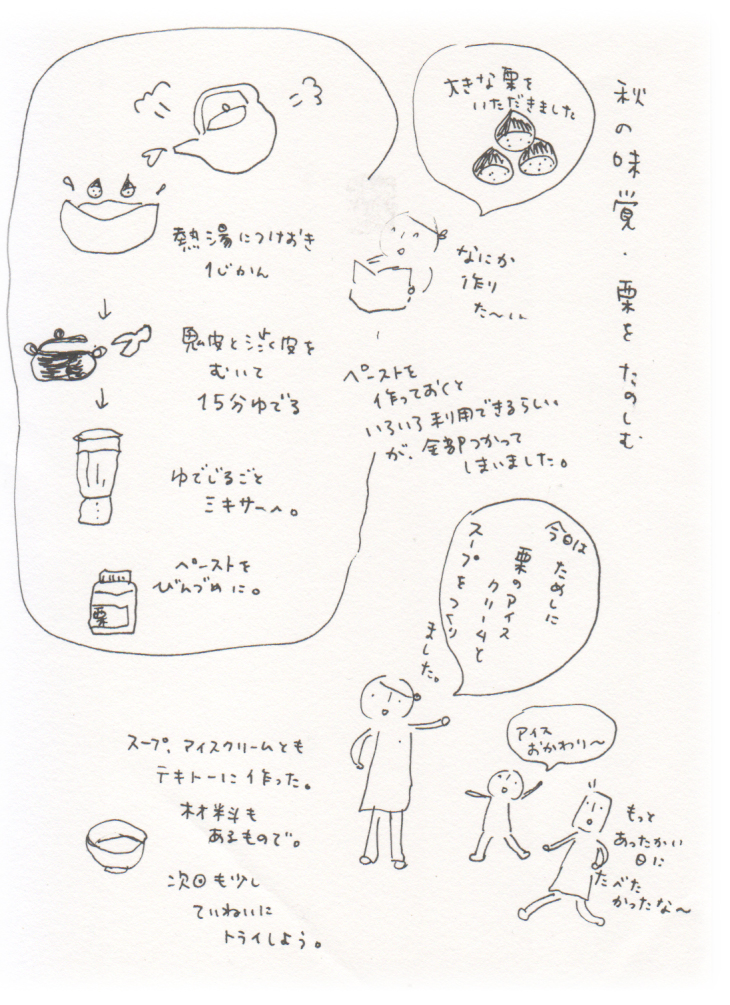 秋の味覚・栗をたのしむ
大きな栗を
いただきました
なにか
作り
た〜い
ペーストを
作っておくと
いろいろ利用できるらしい
が、全部つかって
しまいました。
熱湯につけおき
1じかん
鬼皮と渋皮を
むいて
15分ゆでる
ゆでじるごと
ミキサーへ。
ペーストを
びんづめに。
栗
今日は ために
栗のアイス
クリームと
スープをつくり
ました。
アイス
おかわり〜
もっと
あったかい
日に
たべた
かったな〜
スープ、アイスクリームとも
テキトーに作った。
材料も
あるもので。
次回も少し
ていねいに
トライしよう。